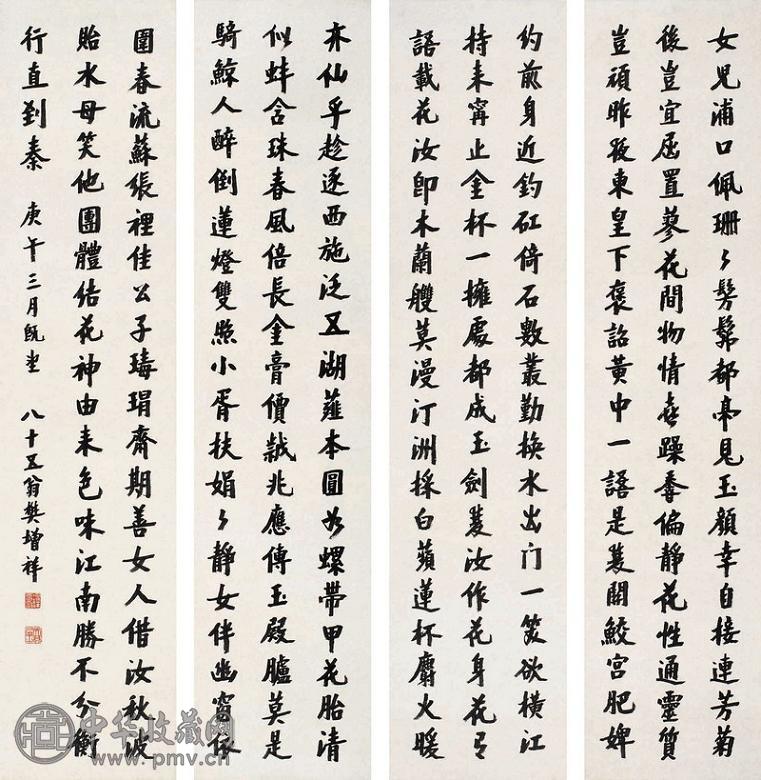 女児浦口佩珊々髣髴都亭見玉顏幸自接連芳菊
後豈宜屈置蓼花間物情喜躁養偏靜花性通靈質
豈頑昨夜東皇下褒詔黃中一語是荾關鮫宮肥婢
約前身近釣矼倚石數叢勤換水出门一笑欲橫江
持來甯止金杯一擁處都成玉劍荾汝作花身花有
語載花汝即木蘭艭莫漫汀洲採白蘋蓮杯麝火暖
亦仙乎趁逐西施泛五湖薤本圓如螺帶甲花胎清
似蚌含珠春風倍長金膏價兆應傳玉殿臚莫是
騎鯨人醉倒蓮燈雙照小胥扶娟々靜女伴幽窗依
圍春流蘇張裡佳公子瑇瑁齋期善女人借汝秋波
貽水母笑他團體結花神由来色味江南勝不分衡
行直到秦 庚午三月既望 八十五翁樊增祥
中华收藏网
www.pmv.cn